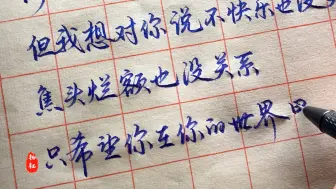 但我想对你说不快乐也没
焦头烂额也没关系
只希望你在你的世界